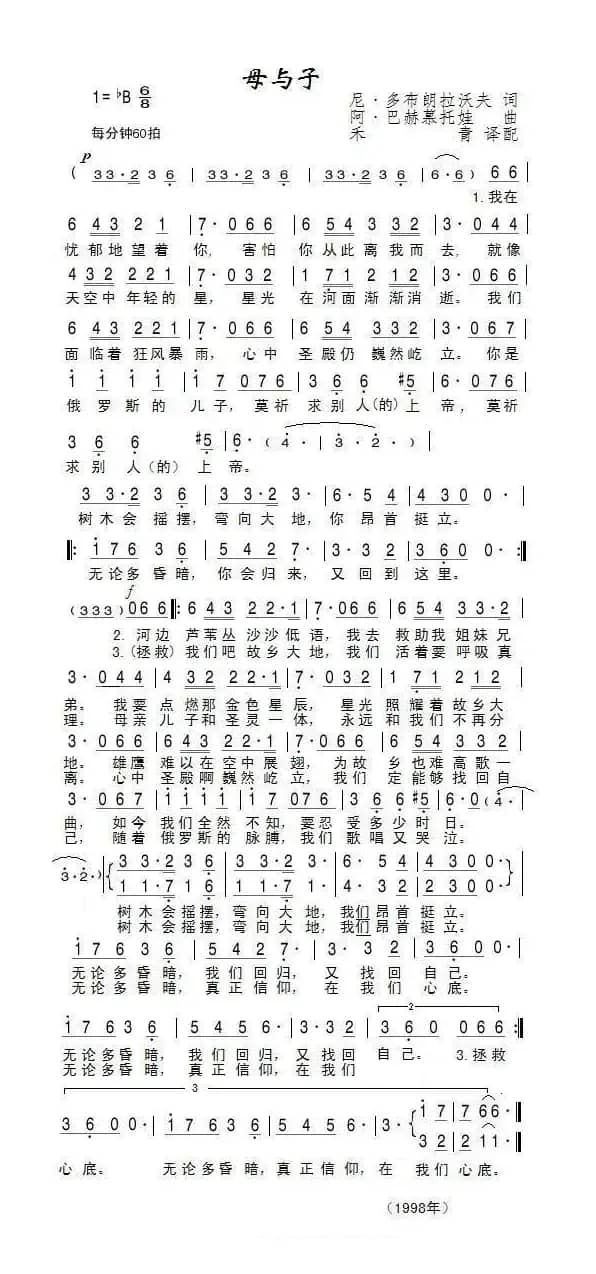 母与子
1= ♭B 6/8
尼·多布朗拉沃夫 词
阿·巴赫慕托娃 曲
每分钟60拍
禾 青 译配
p
( 33·2 3 6 | 33·2 3 6 | 33·2 3 6 | 6·6 ) 66 |
1.我在
6 43 2 1 | 7· 066 | 6 54 3 32 | 3· 044 |
忧郁地望着 你, 害怕 你从此离我而 去, 就像
432 221 | 7· 032 | 1 71 2 12 | 3· 066 |
天空中 年轻的 星, 星光 在河面渐渐消 逝。我们
6 43 221 | 7· 066 | 6 54 332 | 3· 067 |
面 临着 狂风暴 雨, 心中 圣殿仍 巍然屹 立。你是
1 1 1 1 | 1 7 076 | 3 6 6 #5 | 6· 076 |
俄 罗 斯 的 儿子,莫祈 求别人(的)上 帝,莫祈
3 6 6 #5 | 6· ( 4· | 3· 2· ) |
求 别 人(的) 上 帝。
3 3·2 3 6 | 3 3·2 3· | 6· 5 4 | 4 3 0 0· |
树木会 摇摆, 弯向大 地,你 昂首 挺立。
‖: 1 7 6 3 6 | 5 4 2 7· | 3· 3 2 | 3 6 0 0· :‖
无论多 昏暗, 你会归来, 又 回到 这里。
f
(333) 066 ‖: 6 43 22·1 | 7· 066 | 6 54 33·2 |
2. 河边 芦苇丛 沙沙低 语,我去 救助我 姐妹兄
3.(拯救)我们吧 故乡大 地,我们 活着要 呼吸真
3· 044 | 4 32 22·1 | 7· 032 | 1 71 212 |
弟。我要 点 燃那 金色星 辰, 星光 照耀着故乡大
理。母亲 儿子和 圣灵一 体, 永远 和我们 不再分
3· 066 | 6 43 22·1 | 7· 066 | 6 54 33·2 |
地。 雄鹰 难以在空中展 翅, 为故 乡也难 高歌一
离。心中 圣殿啊 巍然屹 立,我们 定能够 找回自
3· 067 | 1 1 1 1 | 1 7 076 | 3 6 6 #5 | 6·0 ( 4·
曲, 如今 我们全然 不知,要忍 受多少时 日。
己, 随着 俄罗斯的 脉膊,我们 歌唱又哭 泣。
3·2· ) 3 3·2 3 6 | 3 3·2 3· | 6· 5 4 | 4 3 0 0·
1 1·7 1 6 | 1 1·7 1· | 3· 5 4 | 4 3 0 0·
树木会摇摆,弯向大 地,我们 昂首 挺立。
树木会摇摆,弯向大 地,我们 昂首 挺立。
1 7 6 3 6 | 5 4 2 7· | 3· 3 2 | 3 6 0 0· |
无论多昏暗, 我们回归, 又 找回 自己。
无论多昏暗, 真正信仰, 在 我们 心底。
2
1 7 6 3 6 | 5 4 5 6· | 3· 3 2 | 3 6 0 066 :‖
无论多昏 暗, 我们回 归,又找回 自己。 3.拯救
无论多昏 暗, 真正信 仰,在我们
3
3 6 0 0· | 1 7 6 3 6 | 5 4 5 6· | 3· 1 7 | 7 6 6·
3 2 | 2 1 1·
心底。 无论多昏 暗,真正信 仰,在 我们 心底。
(1998年)